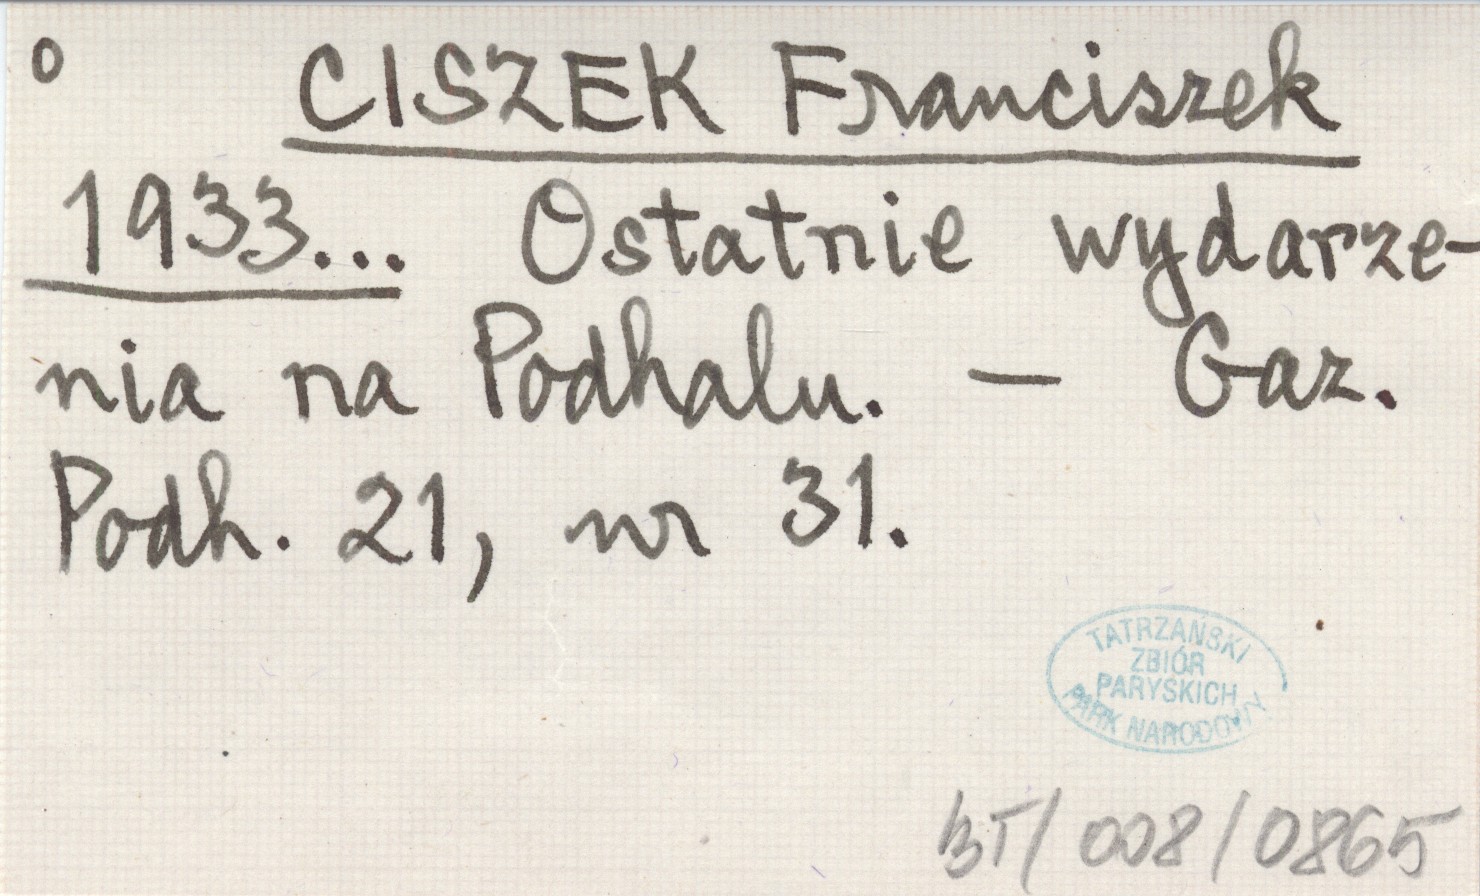 o CISZEK Franciszek
1933... Ostatnie wydarze-
nia na Podhalu. — Gaz.
Podh. 21, nr 31.
TATRZAŃSKI
ZBIÓR
PARYSKICH
PARK NARODOWY
BT/008/0865